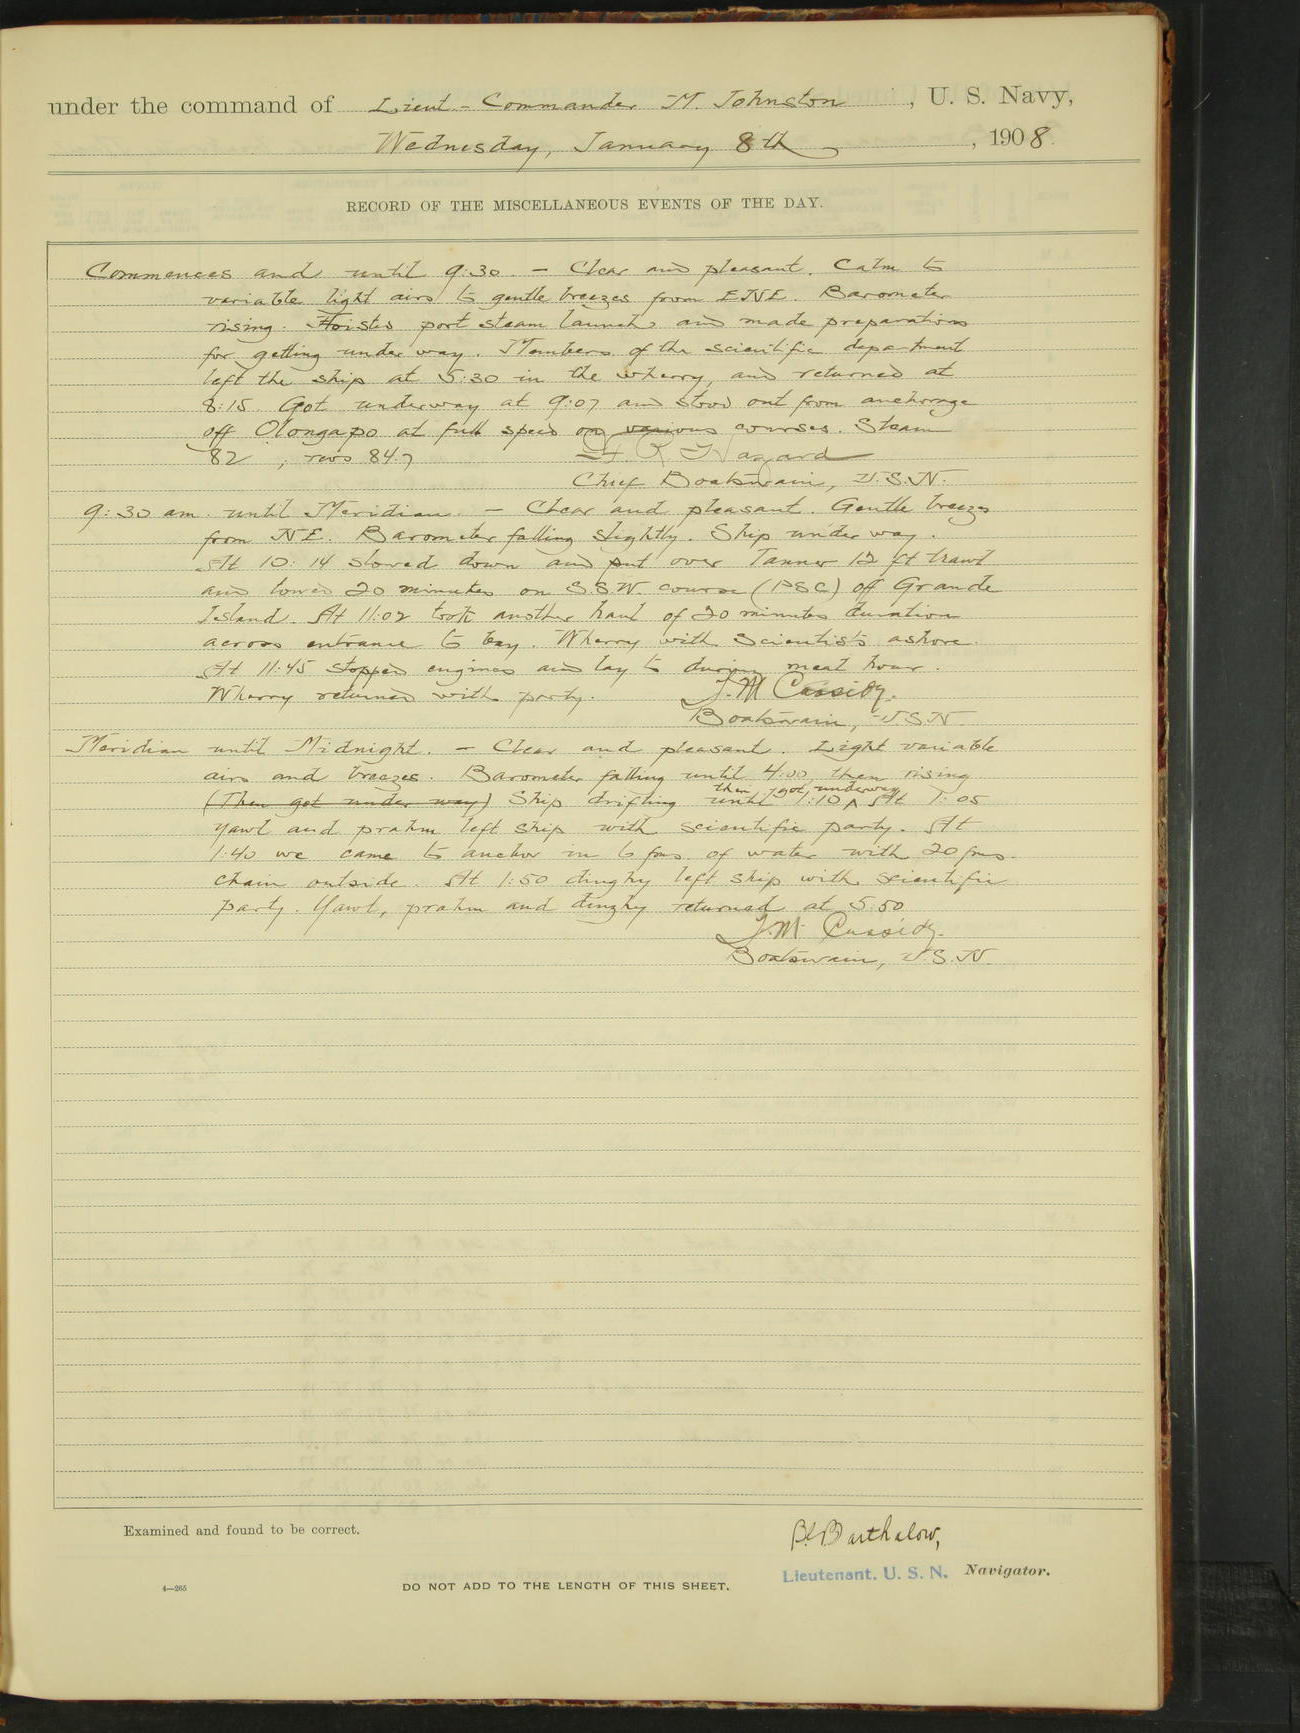 under the command of Lieut-Commander M. Johnston, U. S. Navy,
Wednesday, January 8th, 1908.
RECORD OF THE MISCELLANEOUS EVENTS OF THE DAY.
Commences and until 9:30. – Clear and pleasant. Calm to
variable light airs to gentle breezes from ENE. Barometer
rising. Hoisted port steam launch and made preparations
for getting under way. Members of the scientific department
left the ship at 5:30 in the wherry, and returned at
8:15. Got underway at 9:07 and stood out from anchorage
off Olongapo at full speed on various courses. Steam
82, revs 84.7
Hazard
Chief Boatswain, U.S.N.
9:30 am. until Meridian. – Clear and pleasant. Gentle breeze
from NE. Barometer falling slightly. Ship under way.
At 10:14 slowed down and put over Tanner 12 ft trawl
and towed 20 minutes on S.S.W. course (PSC) off Grande
Island. At 11:02 took another haul of 20 minutes duration
across entrance to bay. Wherry with Scientists ashore.
At 11:45 stopped engines and lay to during meal hour.
Wherry returned with party. J. M. Cassidy.
Boatswain, U.S.N.
Meridian until Midnight. – Clear and pleasant. Light variable
airs and breezes. Barometer falling until 4:00, then rising
then got underway
(Then got under way) Ship drifting until 1:10 ^ At 1:05
yawl and prahm left ship with scientific party. At
1:40 we came to anchor in 6 fms. of water with 20 fms.
chain outside. At 1:50 dinghy left ship with scientific
party. Yawl, prahm and dinghy returned at 5:50
J. M. Cassidy.
Boatswain, U.S.N.
Examined and found to be correct.
Barthalow,
Lieutenant. U. S. N. Navigator.
4—265
DO NOT ADD TO THE LENGTH OF THIS SHEET.